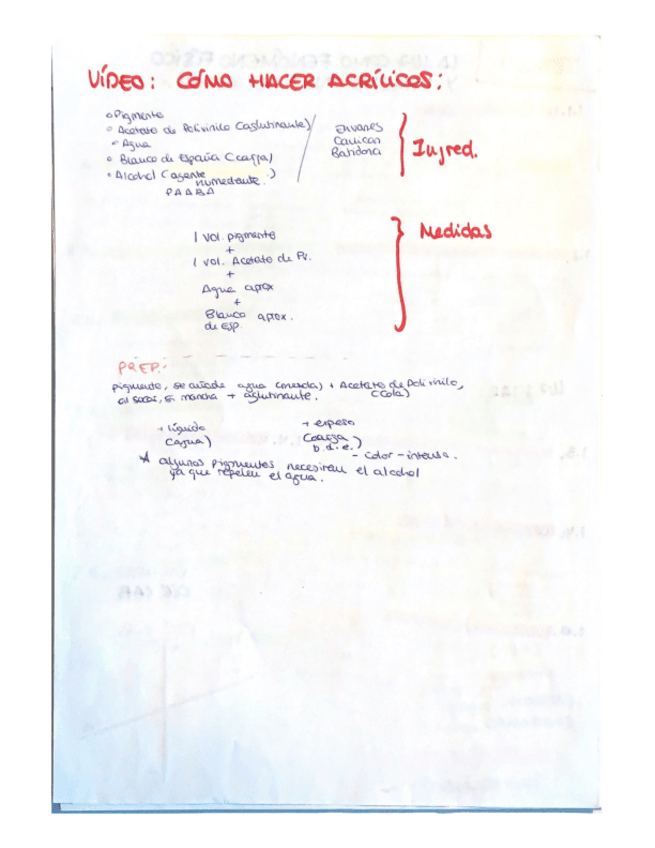 VÍDEO: CÓMO HACER ACRÍLICOS:
Pigmento
Acetato de Polivinilo (aglutinante)
Agua
Blanco de España (carga)
Alcohol (agente humectante.)
PAABA
Envases
Canicas
Batidora
Ingred.
1 Vol. pigmento
+
1 Vol. Acetato de Pv.
+
Agua aprox
+
Blanco aprox.
de ESP.
Medidas
PREP.:
pigmento, se añade agua (mezcla) + Acetato de Polivinilo,
(Cola)
al secar, si mancha + aglutinante.
+ líquido
(agua)
+ espeso
(carga
b.d.e.)
- color - intenso.
* algunos pigmentos necesitan el alcohol
ya que repelen el agua.